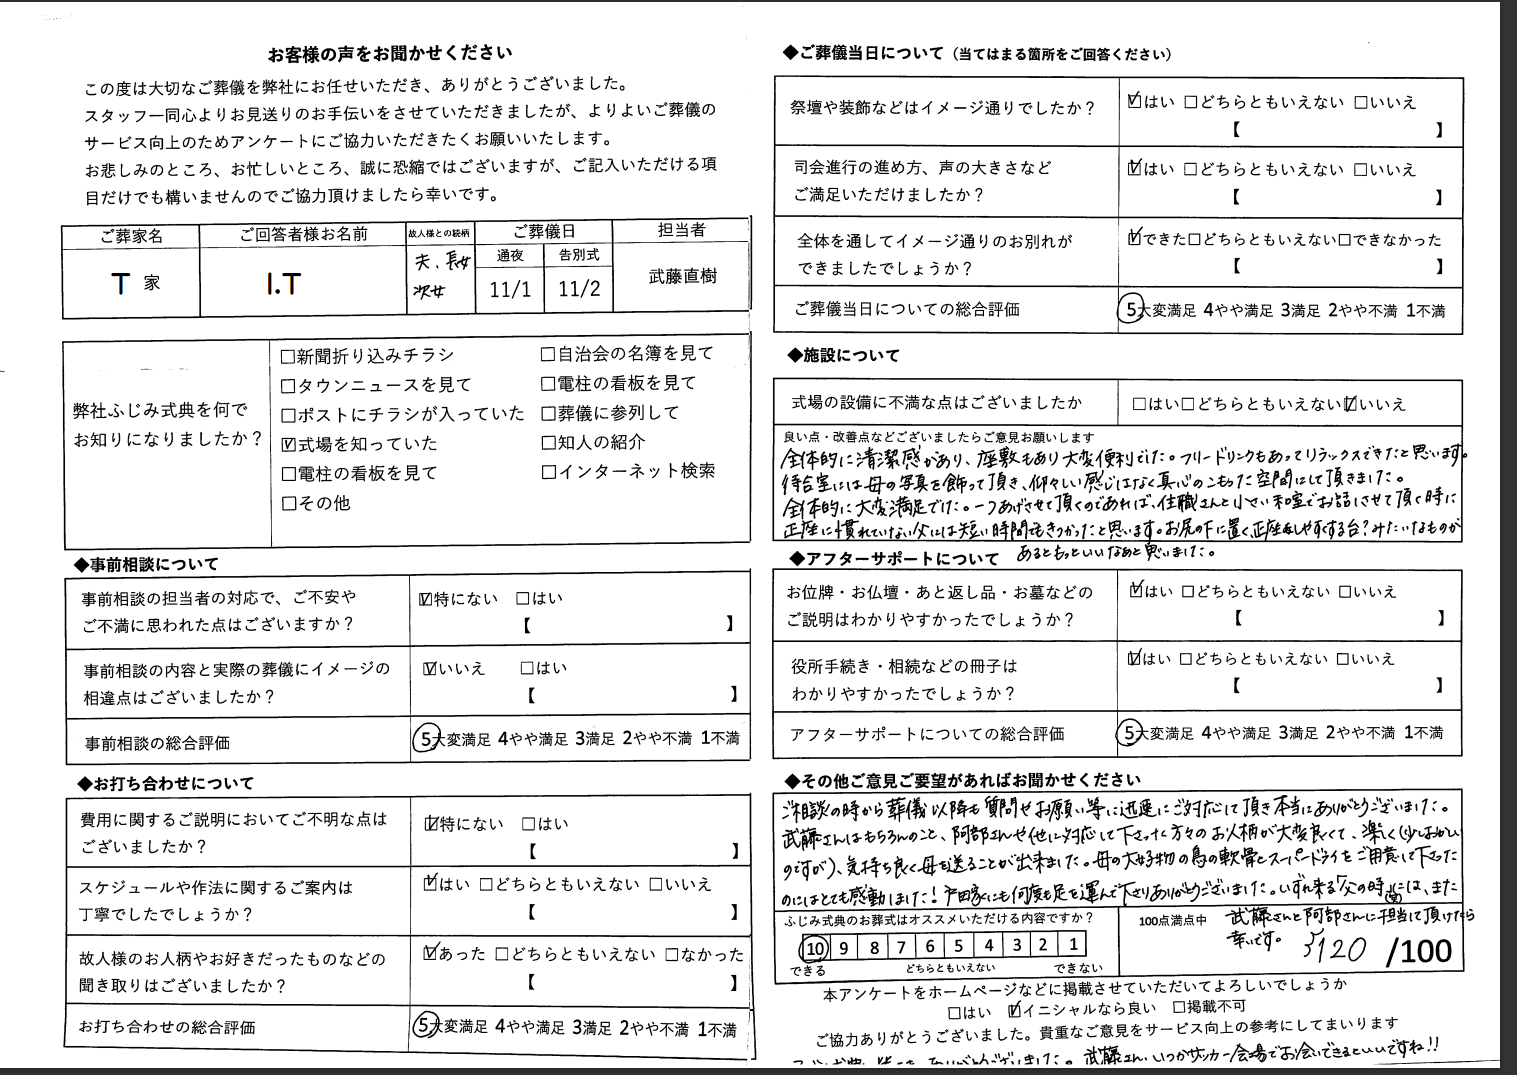 お客様の声をお聞かせください
この度は大切なご葬儀を弊社にお任せいただき、ありがとうございました。
スタッフ一同心よりお見送りのお手伝いをさせていただきましたが、よりよいご葬儀の
サービス向上のためアンケートにご協力いただきたくお願いいたします。
お悲しみのところ、お忙しいところ、誠に恐縮ではございますが、ご記入いただける項
目だけでも構いませんのでご協力頂けましたら幸いです。
ご葬家名 ご回答者様お名前 故人様との続柄 ご葬儀日 担当者
通夜 告別式
T 家 I.T 夫、長女 次女 11/1 11/2 武藤直樹
弊社ふじみ式典を何で
お知りになりましたか？
☐新聞折り込みチラシ ☐自治会の名簿を見て
☐タウンニュースを見て ☐電柱の看板を見て
☐ポストにチラシが入っていた ☐葬儀に参列して
☑式場を知っていた ☐知人の紹介
☐電柱の看板を見て ☐インターネット検索
☐その他
◆事前相談について
事前相談の担当者の対応で、ご不安や
ご不満に思われた点はございますか？
☑特にない ☐はい
【 】
事前相談の内容と実際の葬儀にイメージの
相違点はございましたか？
☑いいえ ☐はい
【 】
事前相談の総合評価 5大変満足 4やや満足 3満足 2やや不満 1不満
◆お打ち合わせについて
費用に関するご説明においてご不明な点は
ございましたか？
☑特にない ☐はい
【 】
スケジュールや作法に関するご案内は
丁寧でしたでしょうか？
☑はい ☐どちらともいえない ☐いいえ
【 】
故人様のお人柄やお好きだったものなどの
聞き取りはございましたか？
☑あった ☐どちらともいえない ☐なかった
【 】
お打ち合わせの総合評価 5大変満足 4やや満足 3満足 2やや不満 1不満
◆ご葬儀当日について（当てはまる箇所をご回答ください）
祭壇や装飾などはイメージ通りでしたか？
☑はい ☐どちらともいえない ☐いいえ
【 】
司会進行の進め方、声の大きさなど
ご満足いただけましたか？
☑はい ☐どちらともいえない ☐いいえ
【 】
全体を通してイメージ通りのお別れが
できましたでしょうか？
☑できた☐どちらともいえない☐できなかった
【 】
ご葬儀当日についての総合評価 5大変満足 4やや満足 3満足 2やや不満 1不満
◆施設について
式場の設備に不満な点はございましたか ☐はい☐どちらともいえない☑いいえ
良い点・改善点などございましたらご意見お願いします
全体的に清潔感があり、座敷もあり大変便利でした。フリードリンクもあってリラックスできたと思います。
待合室には母の写真を飾って頂き、仰々しい感じはなく真心のこもった空間にして頂きました。
全体的に大変満足でした。一つあげさせて頂くのであれば、住職さんと小さい和室でお話させて頂く時に
正座に慣れていない父には短い時間でもきつかったと思います。お尻の下に置く、正座をしやすくする台？みたいなものが
あるともっといいなあと思いました。
◆アフターサポートについて
お位牌・お仏壇・あと返し品・お墓などの
ご説明はわかりやすかったでしょうか？
☑はい ☐どちらともいえない ☐いいえ
【 】
役所手続き・相続などの冊子は
わかりやすかったでしょうか？
☑はい ☐どちらともいえない ☐いいえ
【 】
アフターサポートについての総合評価 5大変満足 4やや満足 3満足 2やや不満 1不満
◆その他ご意見ご要望があればお聞かせください
ご相談の時から葬儀以降も質問やお願い等に迅速にご対応して頂き本当にありがとうございました。
武藤さんはもちろんのこと、阿部さんや他に対応して下さった方々のお人柄が大変良くて、楽しく(少しおかしい
のですが)、気持ち良く母を送ることが出来ました。母の大好物の鳥の軟骨とスーパードライをご用意して下さった
のにはとても感動しました！戸田家にも何度も足を運んで下さりありがとうございました。いずれ来る「父の時」には、また
武藤さんと阿部さんに担当して頂けたら
幸いです。
ふじみ式典のお葬式はオススメいただける内容ですか？
10 9 8 7 6 5 4 3 2 1
できる どちらともいえない できない
100点満点中
120 /100
本アンケートをホームページなどに掲載させていただいてよろしいでしょうか
☐はい ☑イニシャルなら良い ☐掲載不可
ご協力ありがとうございました。貴重なご意見をサービス向上の参考にしてまいります
ありがとうございました。武藤さん、いつかサッカー会場でお会いできるといいですね!!